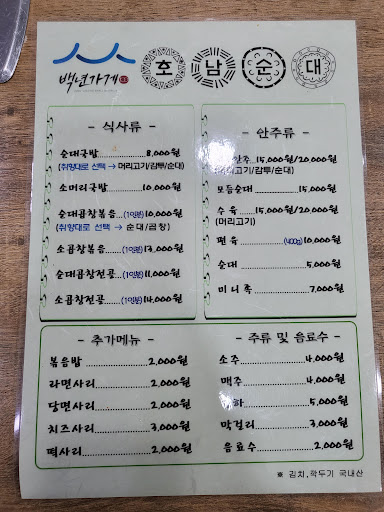 백년가게
호남순대
- 식사류 -
순대국밥 ........ 8,000원
(취향대로 선택 → 머리고기/감투/순대)
소머리국밥 ........ 10,000원
순대곱창볶음...(1인분)10,000원
(취향대로 선택 → 순대/곱창)
소곱창볶음...(1인분)13,000원
순대곱창전골...(1인분)11,000원
소곱창전골...(1인분)14,000원
- 안주류 -
안주...15,000원/20,000원
(머리고기/감투/순대)
모듬순대 ........ 15,000원
수육 ....15,000원/20,000원
(머리고기)
편육 ........(400g)10,000원
순대 ........ 5,000원
미니족 ........ 7,000원
- 추가메뉴 -
볶음밥 ........ 2,000원
라면사리 ........ 2,000원
당면사리 ........ 2,000원
치즈사리 ........ 3,000원
떡사리 ........ 2,000원
- 주류 및 음료수 -
소주 ........ 4,000원
맥주 ........ 4,000원
........ 5,000원
막걸리 ........ 3,000원
음료수 ........ 2,000원
※ 김치,깍두기 국내산